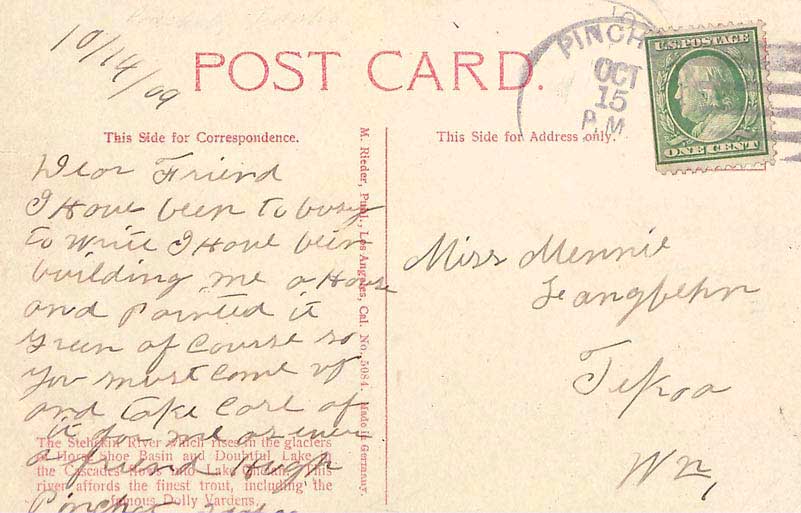 10/14/09
POST CARD.
PINCH
OCT
15
P.M
U.S. POSTAGE
ONE CENT
This Side for Correspondence.
This Side for Address only.
Dear Friend
I Have been to busy
to write I Have been
building me a House
and Painted it
Green of Course so
you must come up
and take Care of
it for me as ever
a friend Hugh
The Stehekin River which rises in the glaciers
of Horse Shoe Basin and Doubtful Lake in
the Cascades flows into Lake This
river affords the finest trout, including the
famous Dolly Vardens.
M. Rieder, Publ., Los Angeles, Cal. No. 5084. Made in Germany.
Miss Mennie
Langbehn
Tekoa
Wn,